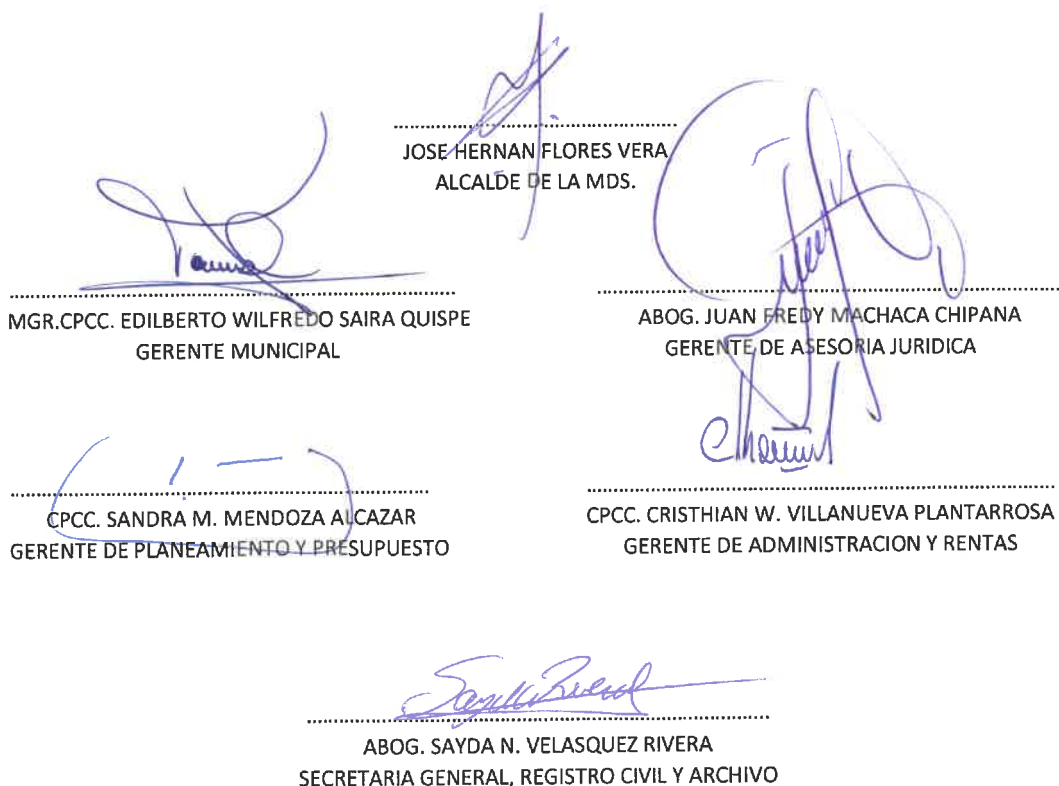 JOSE HERNAN FLORES VERA
ALCALDE DE LA MDS.
MGR.CPCC. EDILBERTO WILFREDO SAIRA QUISPE
GERENTE MUNICIPAL
ABOG. JUAN FREDY MACHACA CHIPANA
GERENTE DE ASESORIA JURIDICA
CPCC. SANDRA M. MENDOZA ALCAZAR
GERENTE DE PLANEAMIENTO Y PRESUPUESTO
CPCC. CRISTHIAN W. VILLANUEVA PLANTARROSA
GERENTE DE ADMINISTRACION Y RENTAS
ABOG. SAYDA N. VELASQUEZ RIVERA
SECRETARIA GENERAL, REGISTRO CIVIL Y ARCHIVO